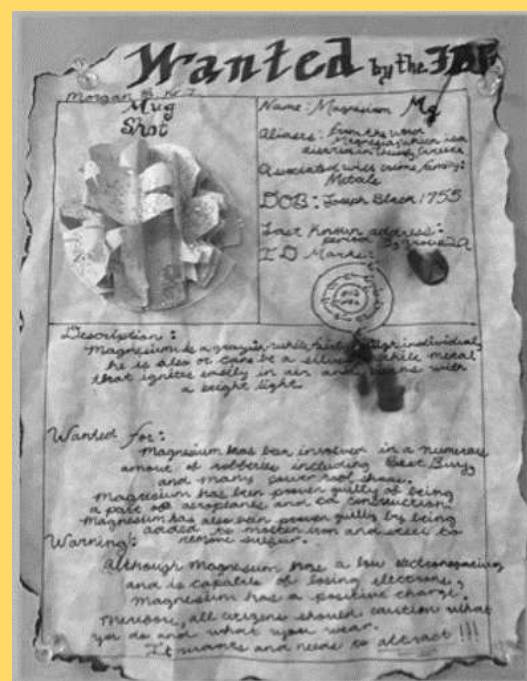 Wanted by the
Morgan
Mug
Shot
Name: Magnesium Mg
Aliases: from the word
Magnesia, which is a
district in Greece
Associated with crime family:
Metals
DOB: Joseph Black 1755
Last known address:
period 3 group 2A
ID Marks:
Description:
Magnesium is a grayish white fairly tough individual,
he is also or can be a silvery white metal
that ignites easily in air and burns with
a bright light
Wanted for:
Magnesium has been involved in a numerous
amount of robberies including Best Buy
and many power tool
Magnesium has been proven guilty of being
a part of aeroplants and car construction.
Magnesium has also been proven guilty by being
added to molten iron and steel to
remove sulfur.
Warning:
Although magnesium has a low electronegativity
and is capable of losing electrons,
magnesium has a positive charge.
all citizens should caution what
you do and what you wear.
It wants and needs to attract!!!